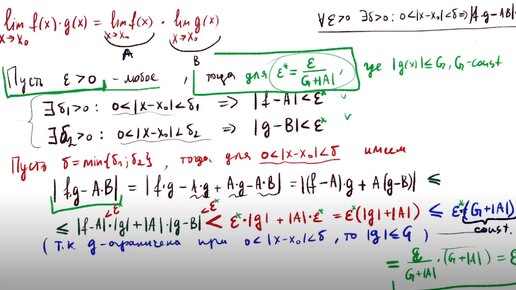 lim f(x)·g(x) = lim f(x) · lim g(x)
x→x₀ x→x₀ x→x₀
A B
∀ε>0 ∃δ>0: 0<|x-x₀|<δ ⇒ |f·g-A·B|
Пусть ε>0 - любое, тогда для ε* = ε/(G+|A|), где |g(x)|≤G, G-const
∃δ₁>0: 0<|x-x₀|<δ₁ ⇒ |f-A|<ε* ✓
∃δ₂>0: 0<|x-x₀|<δ₂ ⇒ |g-B|<ε* ✓
Пусть δ=min{δ₁;δ₂}, тогда для 0<|x-x₀|<δ имеем
|f·g-A·B| = |f·g - A·g + A·g - A·B| = |(f-A)·g + A(g-B)| ≤
<ε* <ε*
≤ |f-A|·|g| + |A|·|g-B| < ε*·|g| + |A|·ε* = ε*(|g|+|A|) ≤ ε*·(G+|A|)
const.
(т.к. g-ограничена при 0<|x-x₀|<δ, то |g|≤G)
= ε/(G+|A|) · (G+|A|) = ε